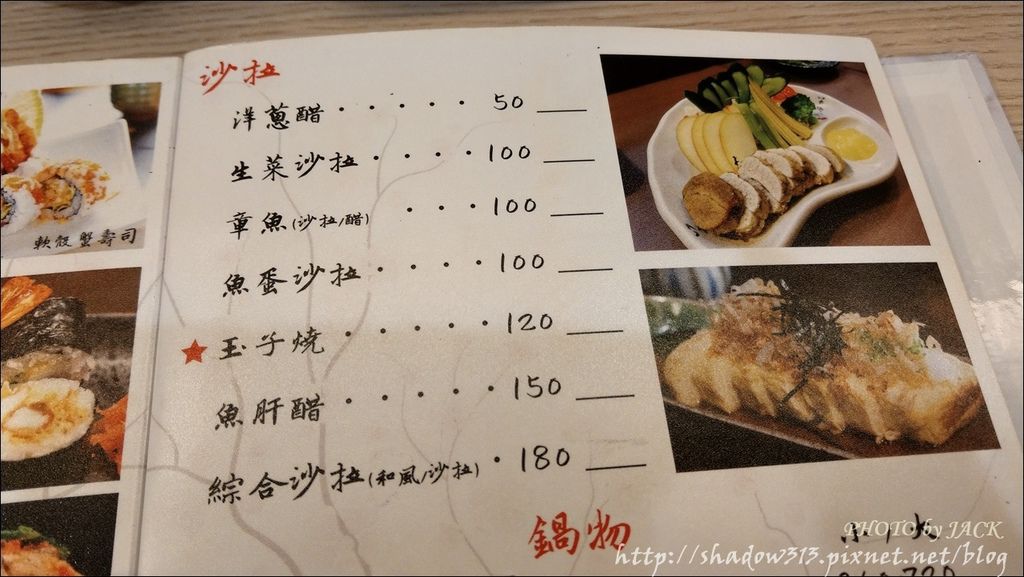 沙拉
洋蔥醋 · · · · · 50 ____
生菜沙拉 · · · · 100 ____
章魚(沙拉/醋) · · · 100 ____
魚蛋沙拉 · · · · 100 ____
★玉子燒 · · · · · 120 ____
魚肝醋 · · · · · 150 ____
綜合沙拉(和風/沙拉) · 180 ____
鍋物
軟殼蟹壽司
PHOTO by JACK
http://shadow313.pixnet.net/blog